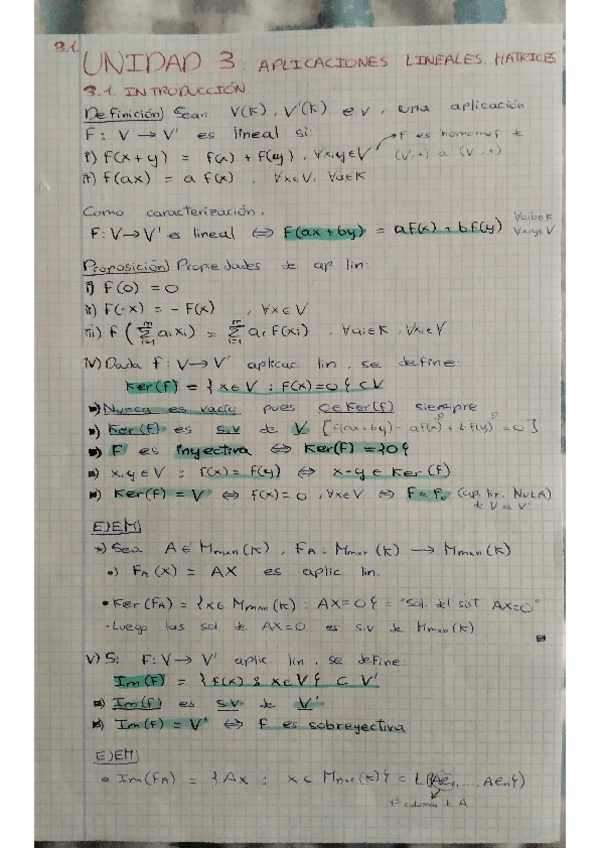 3.1.
UNIDAD 3: APLICACIONES LINEALES. MATRICES
3.1. INTRODUCCIÓN.
Definición) Sean V(K), V'(K) e.v, una aplicación
F: V → V' es lineal si:
i) F(x+y) = f(x) + F(y), ∀x,y∈V → F es homomorf de (V,+) a (V',+)
ii) f(ax) = a f(x), ∀x∈V, ∀a∈K
Como caracterización,
F: V → V' es lineal ⇔ F(ax+by) = aF(x) + bf(y) ∀a,b∈K ∀x,y∈V
Proposición) Propiedades de ap lin:
i) F(0) = 0
ii) F(-x) = -F(x), ∀x∈V
iii) f(∑ aixi) = ∑ ai F(xi), ∀ai∈K, ∀xi∈V
iv) Dada f: V → V' aplicac lin, se define:
Ker(f) = {x∈V : F(x)=0} ⊂ V
*) Nunca es vacío pues 0∈Ker(f) siempre
*) Ker(f) es s.v de V [f(ax+by) = af(x) + bf(y) = 0]
*) F es inyectiva ⇔ Ker(F) = {0}
*) x,y∈V : f(x) = f(y) ⇔ x-y ∈ Ker(f)
*) Ker(f) = V ⇔ f(x) = 0, ∀x∈V ⇔ F = F0 (ap. lin. NULA) de V a V'
EJEM)
*) Sea A∈Mmxn(K), FA: Mnx1(K) → Mmx1(K)
•) FA(X) = AX es aplic lin.
• Ker(FA) = {x∈Mnx1(K) : AX=0} = "Sol. del sist AX=0"
- Luego las sol de AX=0 es s.v de Mnx1(K)
v) Si F: V → V' aplic. lin, se define:
Im(F) = {f(x) : x∈V} ⊂ V'
*) Im(f) es s.v de V'
*) Im(f) = V' ⇔ F es sobreyectiva
EJEM)
• Im(FA) = {Ax : x∈Mnx1(K)} = L{Ae1, ..., Aen}
1ª columna de A.